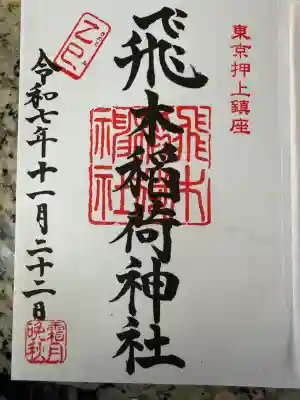 東京押上鎮座
飛木稲荷神社
飛木稲荷神社
令和七年十一月二十二日
霜月
晩秋